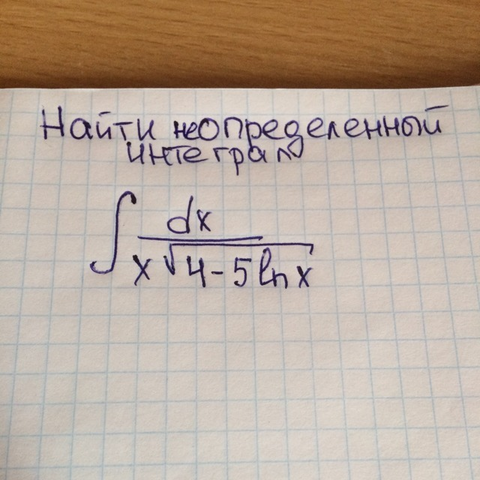 Найти неопределенный
интеграл
∫ dx / x√4-5lnx